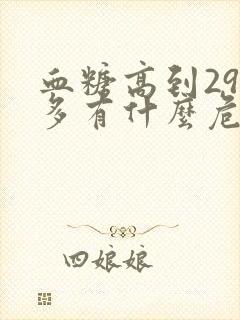 血糖高到29
多有什麼危
四娘娘